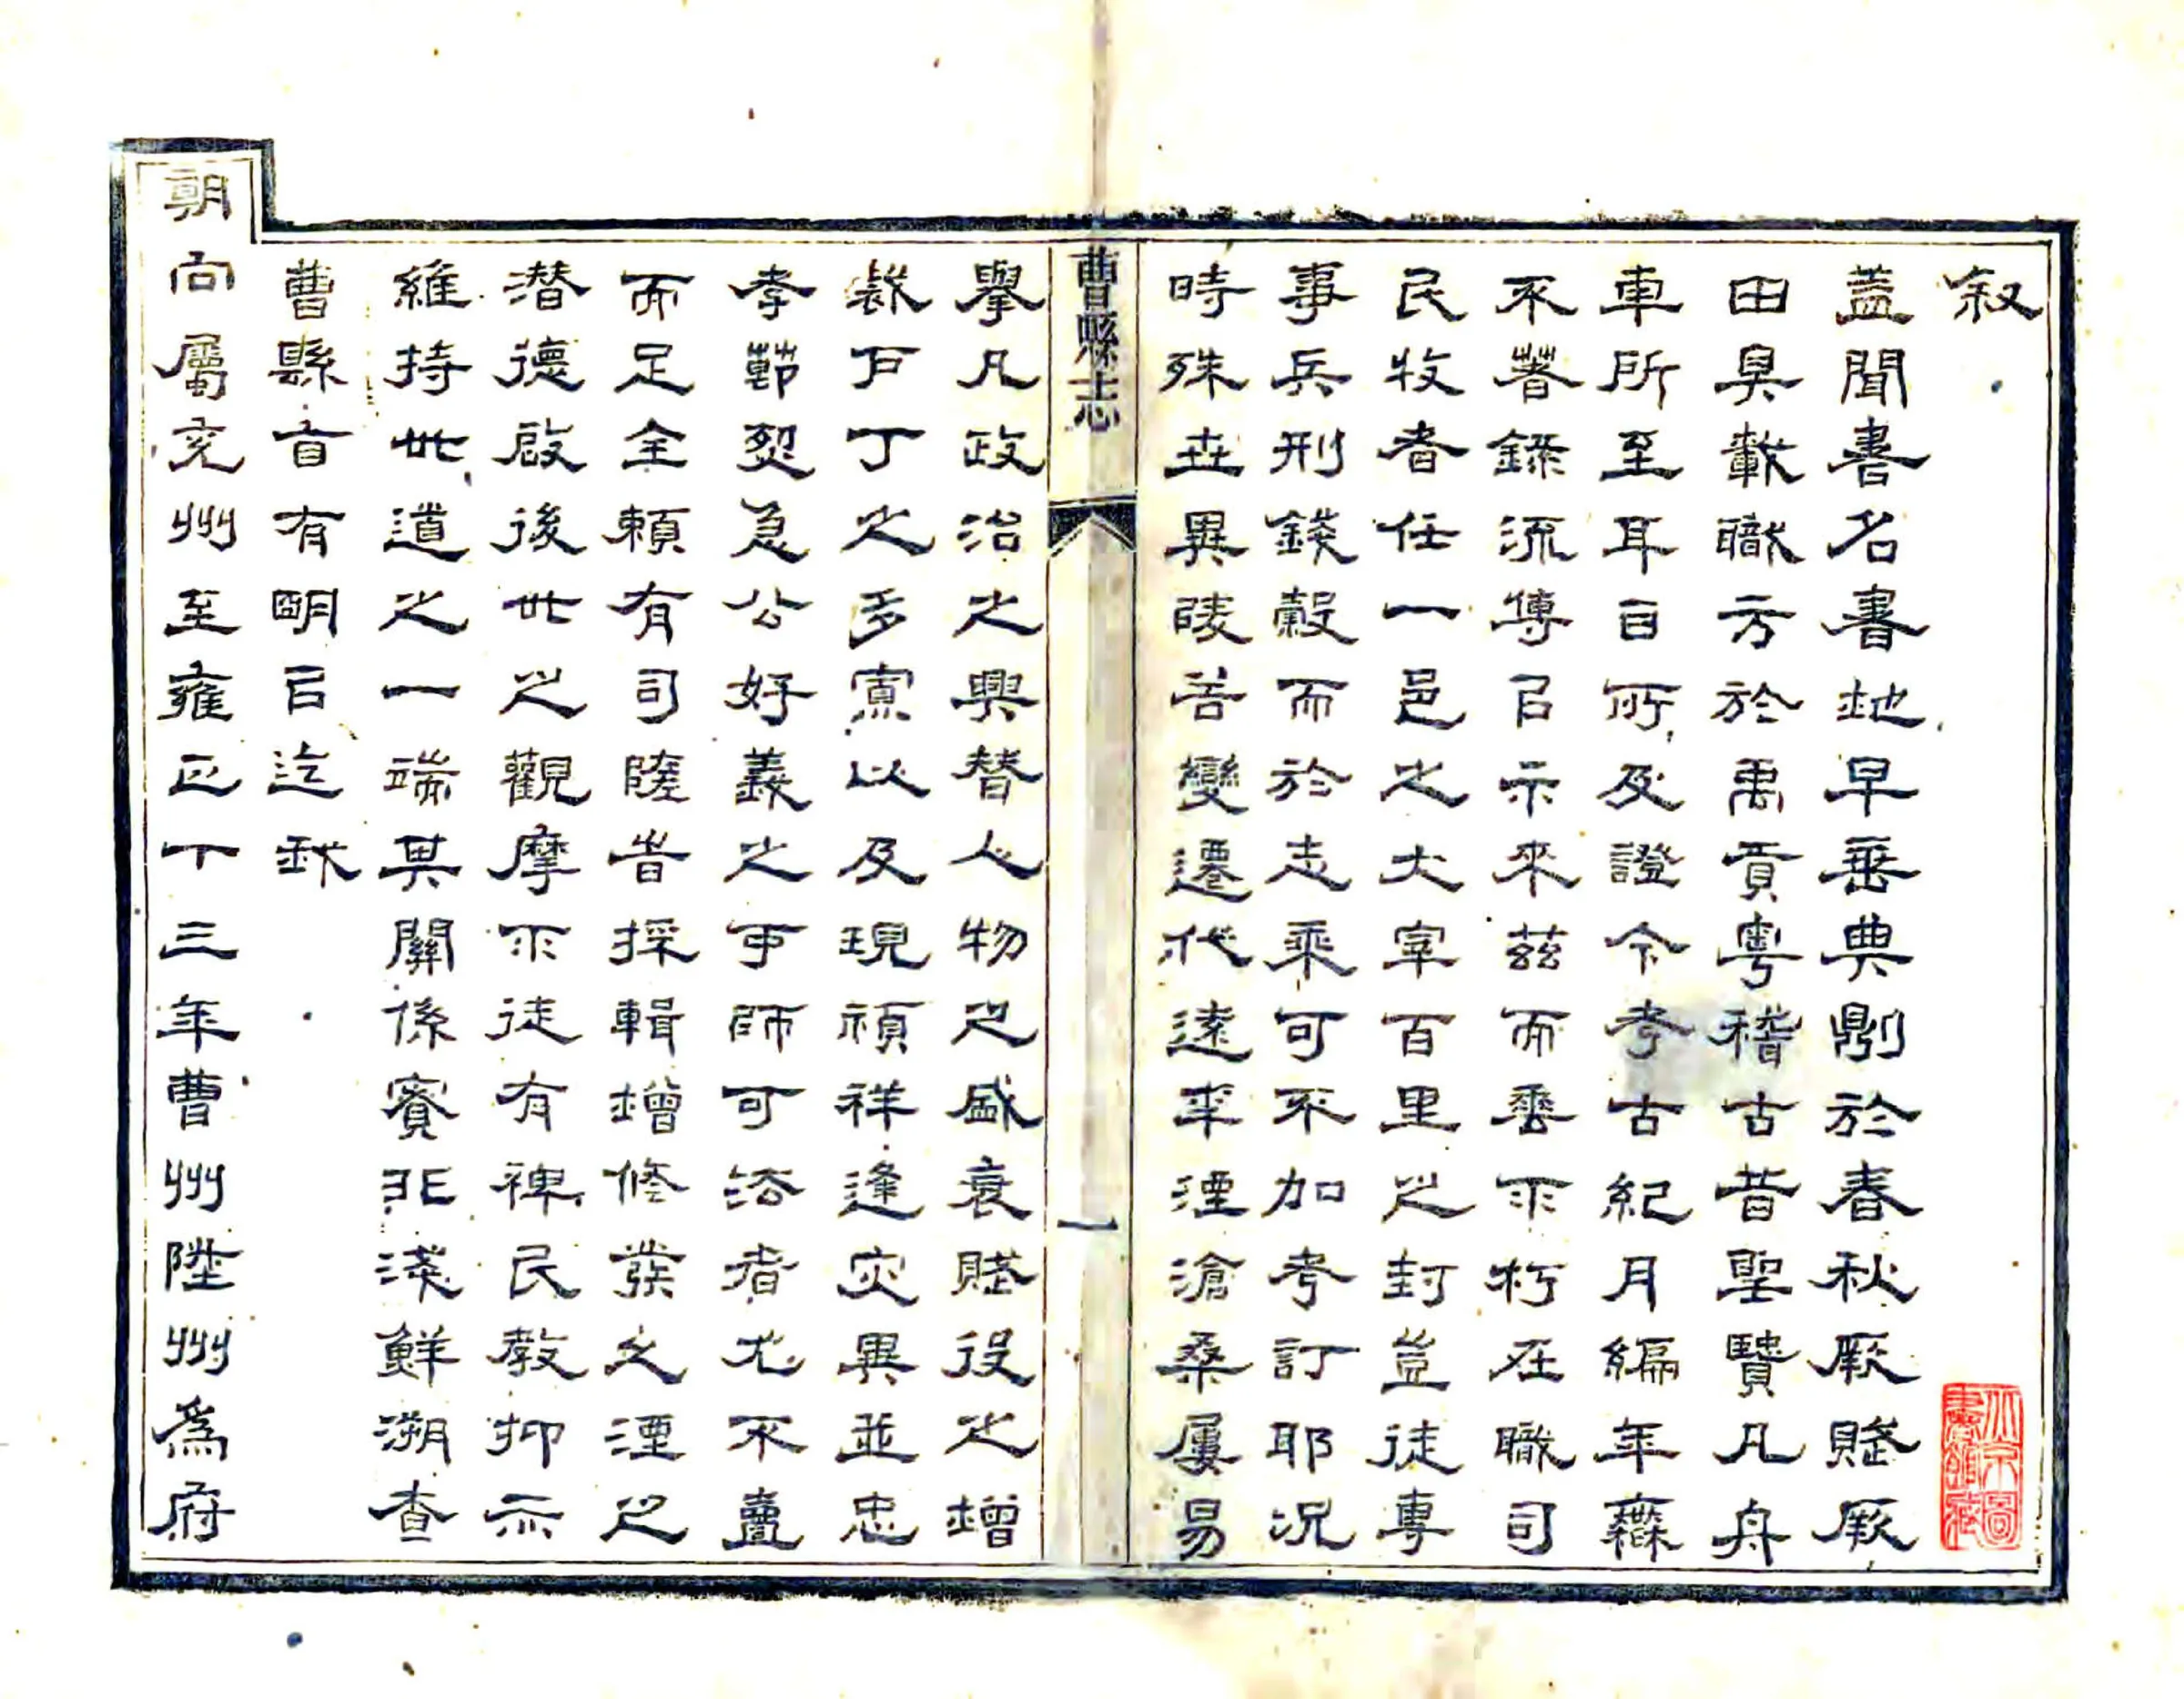 叙
蓋聞書名書地早垂典則於春秋厥賦厥
田臭載職方於禹貢粵稽古昔聖賢凡舟
車所至耳目所及證今考古紀月編年靡
不著錄流傳㠯示來茲而垂不朽在職司
民牧者任一邑之大宰百里之封豈徒專
事兵刑錢穀而於志乘可不加考訂耶況
時殊世異陵谷變遷代遠年湮滄桑屢易
曹縣志
一
舉凡政治之興替人物之盛衰賦役之增
裁戶丁之多寡以及現禎祥逢灾異並忠
孝節烈急公好義之事師可法者尤不盡
而足全賴有司隨昔採輯增修發久湮之
潛德啟後世之觀摩不徒有裨民教抑亦
維持世道之一端其關係實非淺鮮溯查
曹縣旨有明㠯迄我
朝向屬兗州至雍正十三年曹州陞州為府